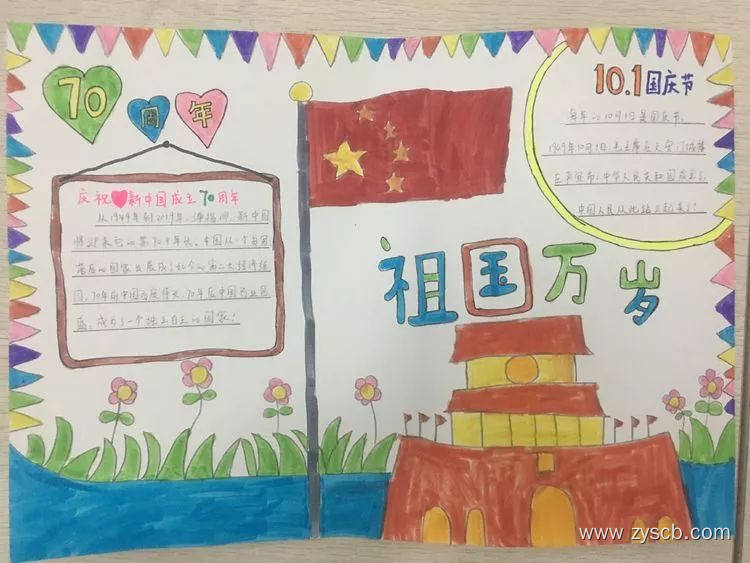 70周年
10.1国庆节
每年的10月1日是国庆节。
1949年10月1日,毛主席在天安门城楼
庄严宣布:中华人民共和国成立了
中国人民从此站立起来了!
庆祝新中国成立70周年
从1949年到2019年,弹指间,新中国
将迎来它的第70个年头。中国从一个贫穷
落后的国家发展成了如今的第二大经济体
国。70年前中国
70年后中国
成为了一个独立自主的国家!
祖国万岁
www.zyscb.com